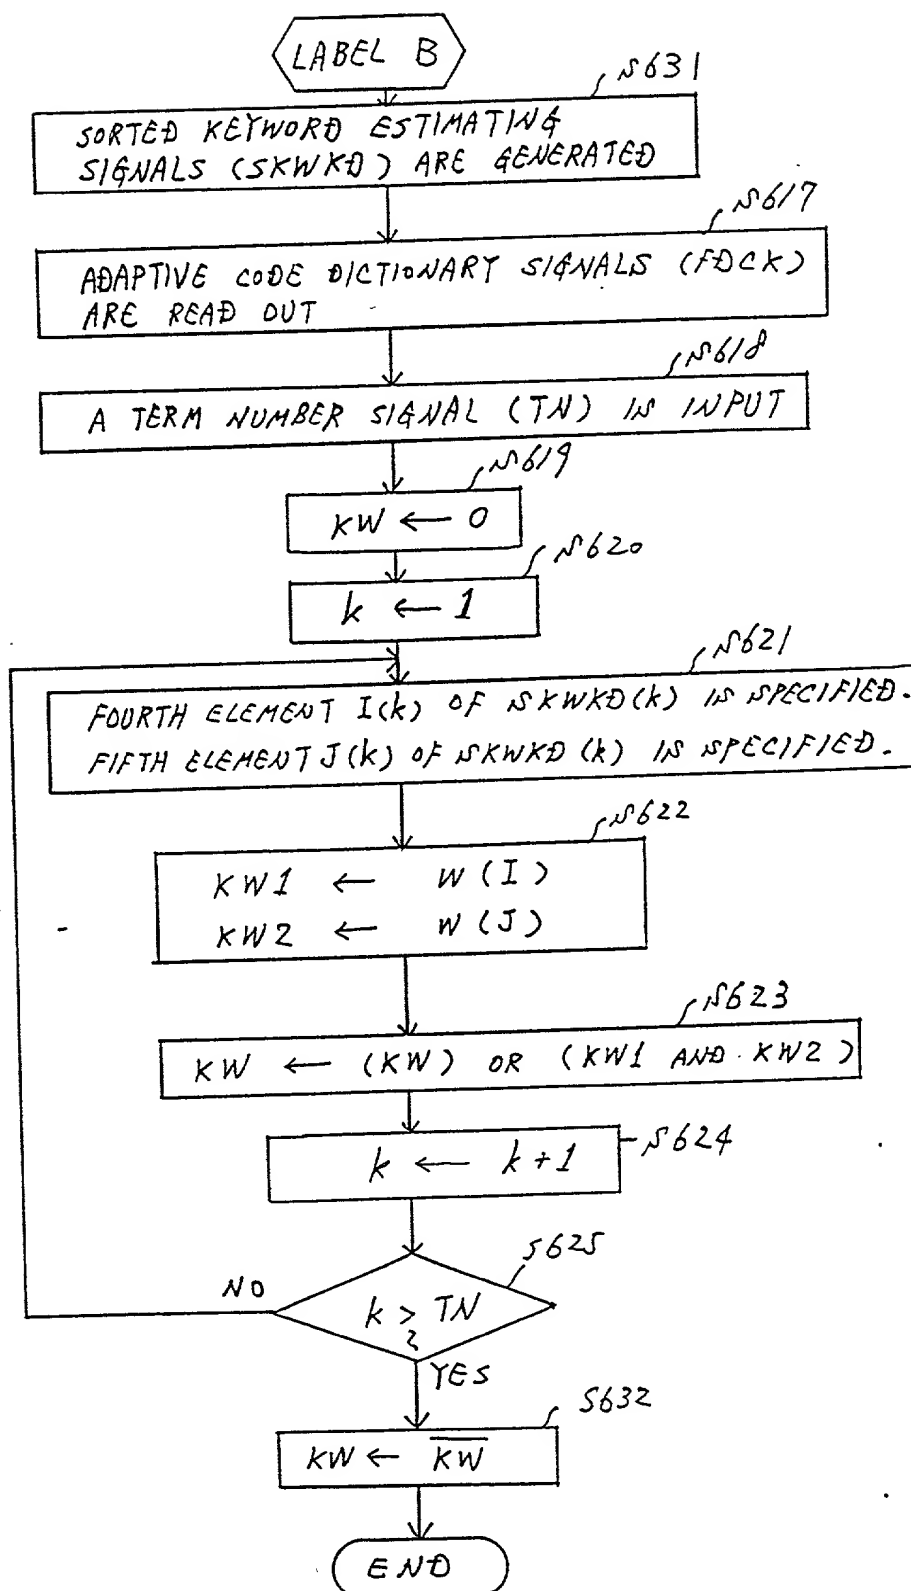 LABEL B
S631
SORTED KEYWORD ESTIMATING
SIGNALS (SKWKD) ARE GENERATED
S617
ADAPTIVE CODE DICTIONARY SIGNALS (FDCK)
ARE READ OUT
S618
A TERM NUMBER SIGNAL (TN) IS INPUT
S619
KW ← 0
S620
k ← 1
S621
FOURTH ELEMENT I(k) OF SKWKD(k) IS SPECIFIED.
FIFTH ELEMENT J(k) OF SKWKD(k) IS SPECIFIED.
S622
KW1 ← W(I)
KW2 ← W(J)
S623
KW ← (KW) OR (KW1 AND KW2)
S624
k ← k+1
S625
NO
k > TN
?
YES
S632
KW ← K̅W̅
END